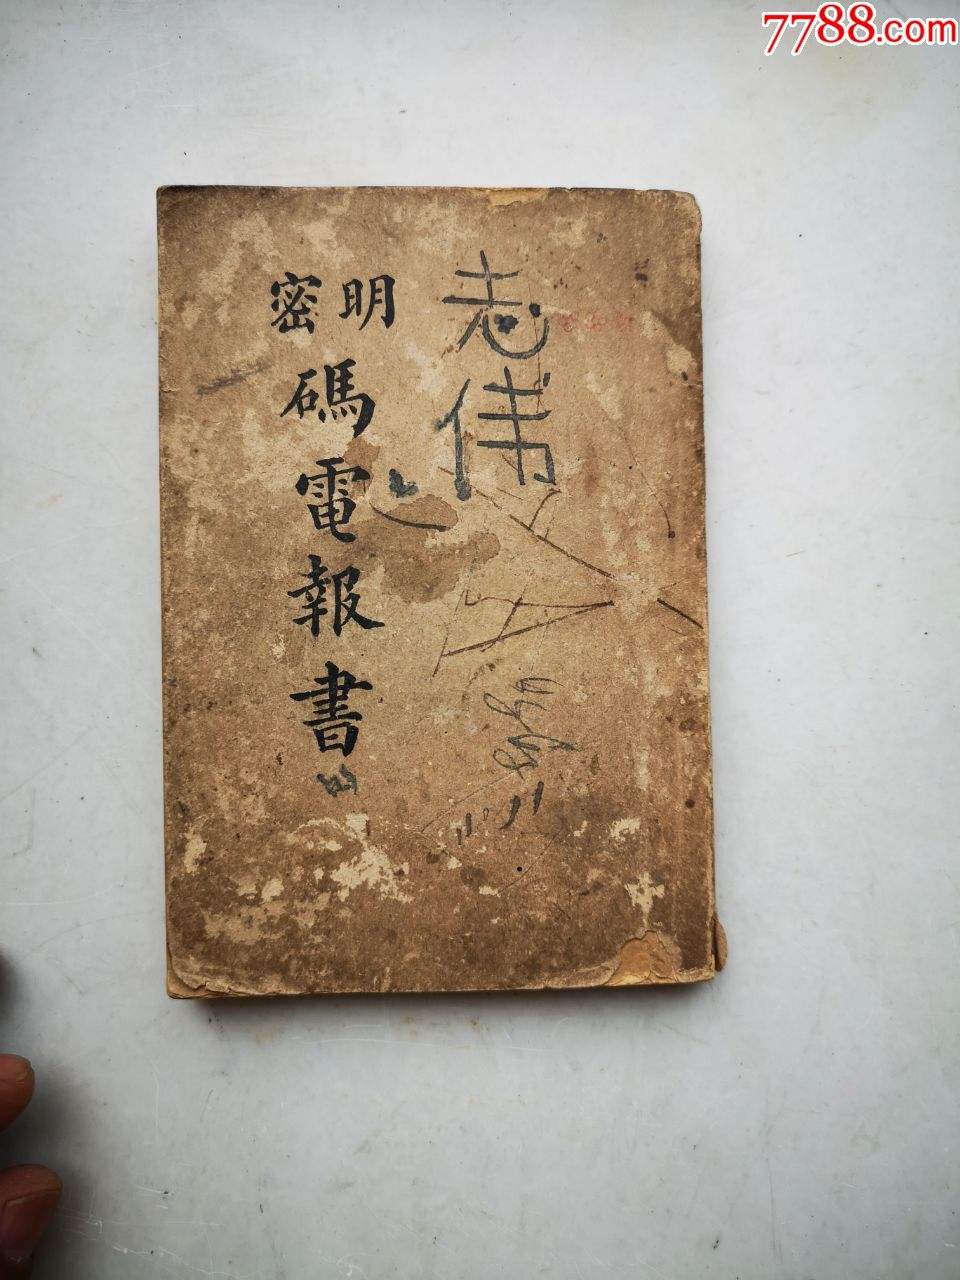 7788.com
志伟
明密
碼電報書